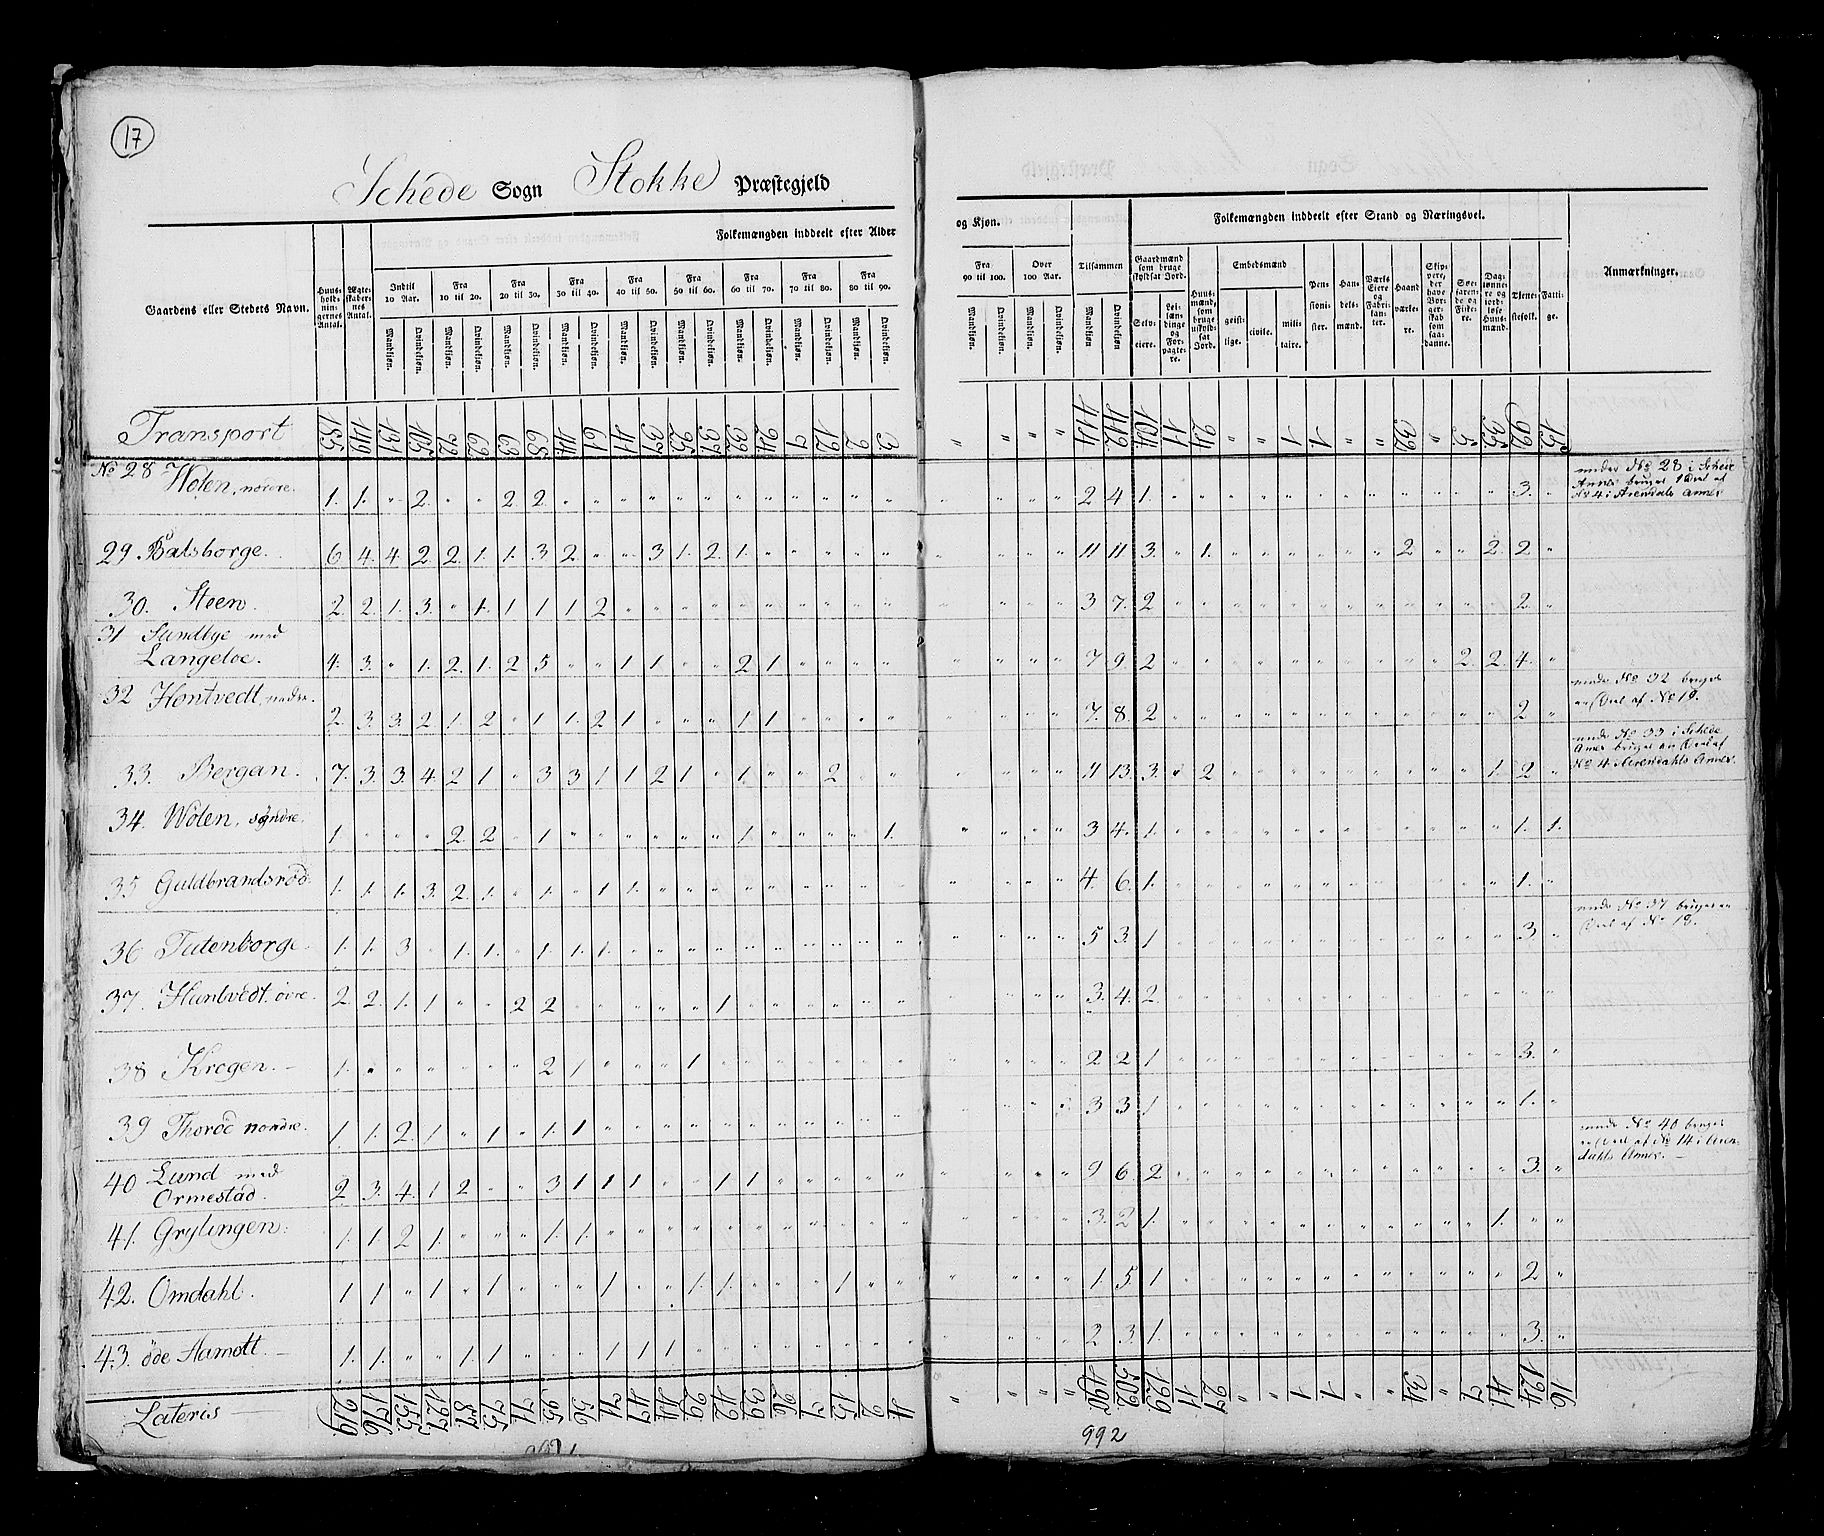 17
Schede Sogn Stokke Præstegjeld
Gaardens eller Stedets Navn. Huusholdningernes Antal. Ægteskabernes Antal. Folkemængden inddeelt efter Alder og Kjøn. Folkemængden inddeelt efter Stand og Næringsvei. Anmærkninger.
Indtil 10 Aar. Fra 10 til 20. Fra 20 til 30. Fra 30 til 40. Fra 40 til 50. Fra 50 til 60. Fra 60 til 70. Fra 70 til 80. Fra 80 til 90. Fra 90 til 100. Over 100 Aar. Tilsammen
Mandkjøn. Qvindekjøn.
Gaardmænd som bruge skyldsat Jord. Selveiere. Leilændinge og Forpagtere. Huusmænd, som bruge uskyldsat Jord. Embedsmænd geistlige. civile. militaire. Pensionister. Handelsmænd. Værkseiere og Fabrikanter. Haandværkere. Skippere, der have Borgerskab som saadanne. Søefarende og Fiskere. Daglønnere og jordløse Huusmænd. Tjenestefolk. Fattige.
Transport 185 149 131 105 72 62 63 68 44 61 41 37 25 37 32 24 7 12 2 3 " " " " 414 412 104 11 24 " " 1 1 " " 32 " 5 35 92 15
No 28 Holen, nordre. 1. 1. " 2. " " 2 2 2 4 1. 3. under No 28 i Schede
Annex bruges 1 Deel af
No 4 i Arendals Annex
29. Batsborge. 6 4. 4. 2. 2. 1. 1. 3 2. " " 3 1. 2. 1. 11 11. 3. " 1. 2. 2. 2.
30. Steen. 2. 2. 1. 3. " 1. 1 1 1 2 3 7. 2 2.
31 Sundbye med
Langeloe. 4. 3. " 1. 2. 1. 2 5 " " 1 1 " " 2 1 7 9. 2 2. 2. 4.
32 Hontvedt, nedre. 2. 3. 3. 2 1. 2 " 1 1. 2 1 " " " 1 1 7. 8. 2 2 under No 32 bruges
en Deel af No 19.
33. Bergan. 7. 3. 3. 4. 2 1 " 3 3 1 1 2 1 " 1. " " 2. 11 13. 3. " 2 1. 2. under No 33 i Schede
Annex bruges en Deel af
No 4 i Arendahls Annex.
34. Wolen, søndre. 1. " " " 2 2 " 1 1. 1. 3 4. 1. 1. 1.
35 Guldbrandsrød. 1. 1. 1. 3. 2. 1. " 1. " 1 1. 4. 6. 1. 1.
36 Tutenborge. 1. 1. 3 " 1. 1. " 1. 1. 1. 5 3. 1 3. under No 37 bruges en
Deel af No 18.
37. Huntvedt, øvre. 2 2. 1. 1 " " 2 2 1 3. 4. 2.
38 Krogen. 1. " " " " " " 2 1 " " " 1 2 2 1 3.
39 Thorød nordre. 1. 1. 2. 1 " 1 " 1. 1 3 3 1 1.
40 Lund med
Ormestad. 2 3. 4. 1 2 " " 3 1 1 1 " " 1 1 9 6. 2 3. under No 40 bruges
en Deel af No 14 i Aren-
dahls Annex.
41. Grylingen. 1. 1. 2 1. " " " 1. 1. 3. 2 1. 1.
42. Omdahl. 1 1 " 1 " 1 " " " 1 " " 1. 1. " " " 1 1. 5. 1 2
43. öde Aamott. 1. 1. " " 1. 1 " " " 1 1 1 2 3. 1. 3.
Lateris 219 176 155 127 87 75 71 95 56 71 47 44 29 42 39 26 7 15 2 4 " " " " 490 502 129 11 27 " " 1 1 " " 34 " 7 41 124 16
992